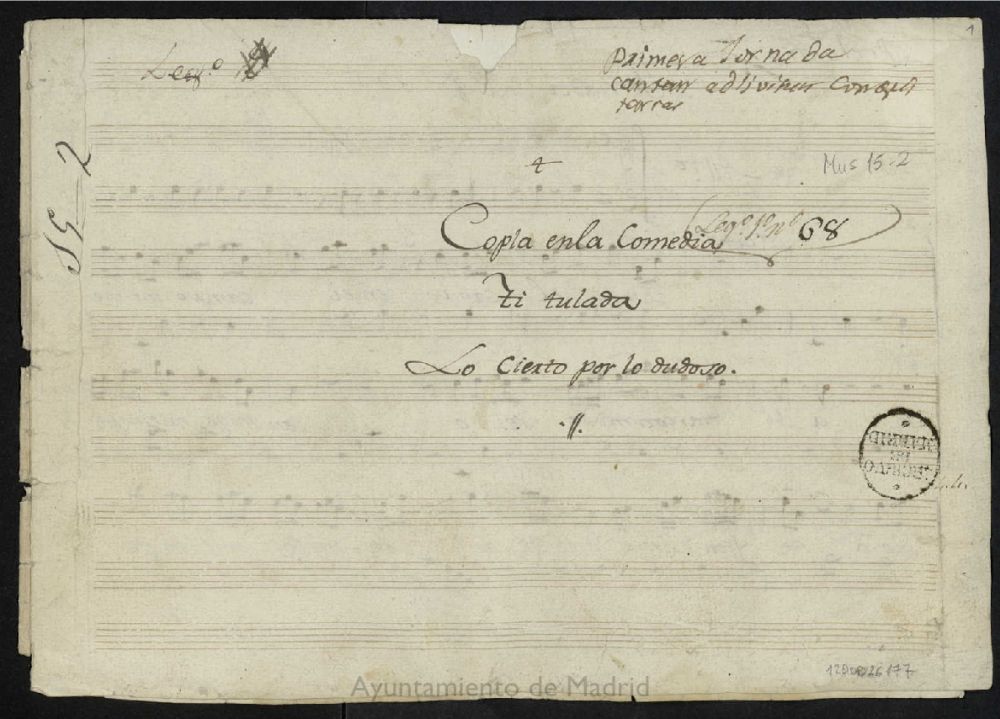 1
Leg.º
Primera Jornada
cantan adlivitun con Gui
tarras
15-2
4
Mus 15-2
Copla enla Comedia
Leg.º 1º nº 68
Titulada
Lo Cierto por lo dudoso.
ARCHIVO
DE
MADRID
1200026177
Ayuntamiento de Madrid